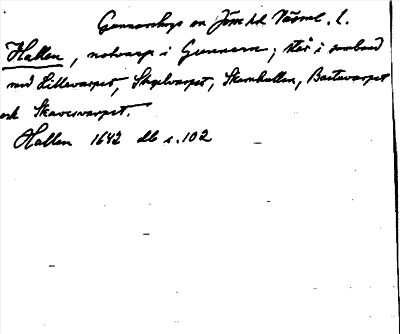 Gunnarskogs sn Jösse hd Värml. l.
Hallen, notvarp i Gunnarn; står i samband
med Lillevarpet, Skogelvarpet, Skarnhallen, Bastuvarpet
och Skaresvarpet.
Hallen 1642 db s. 102